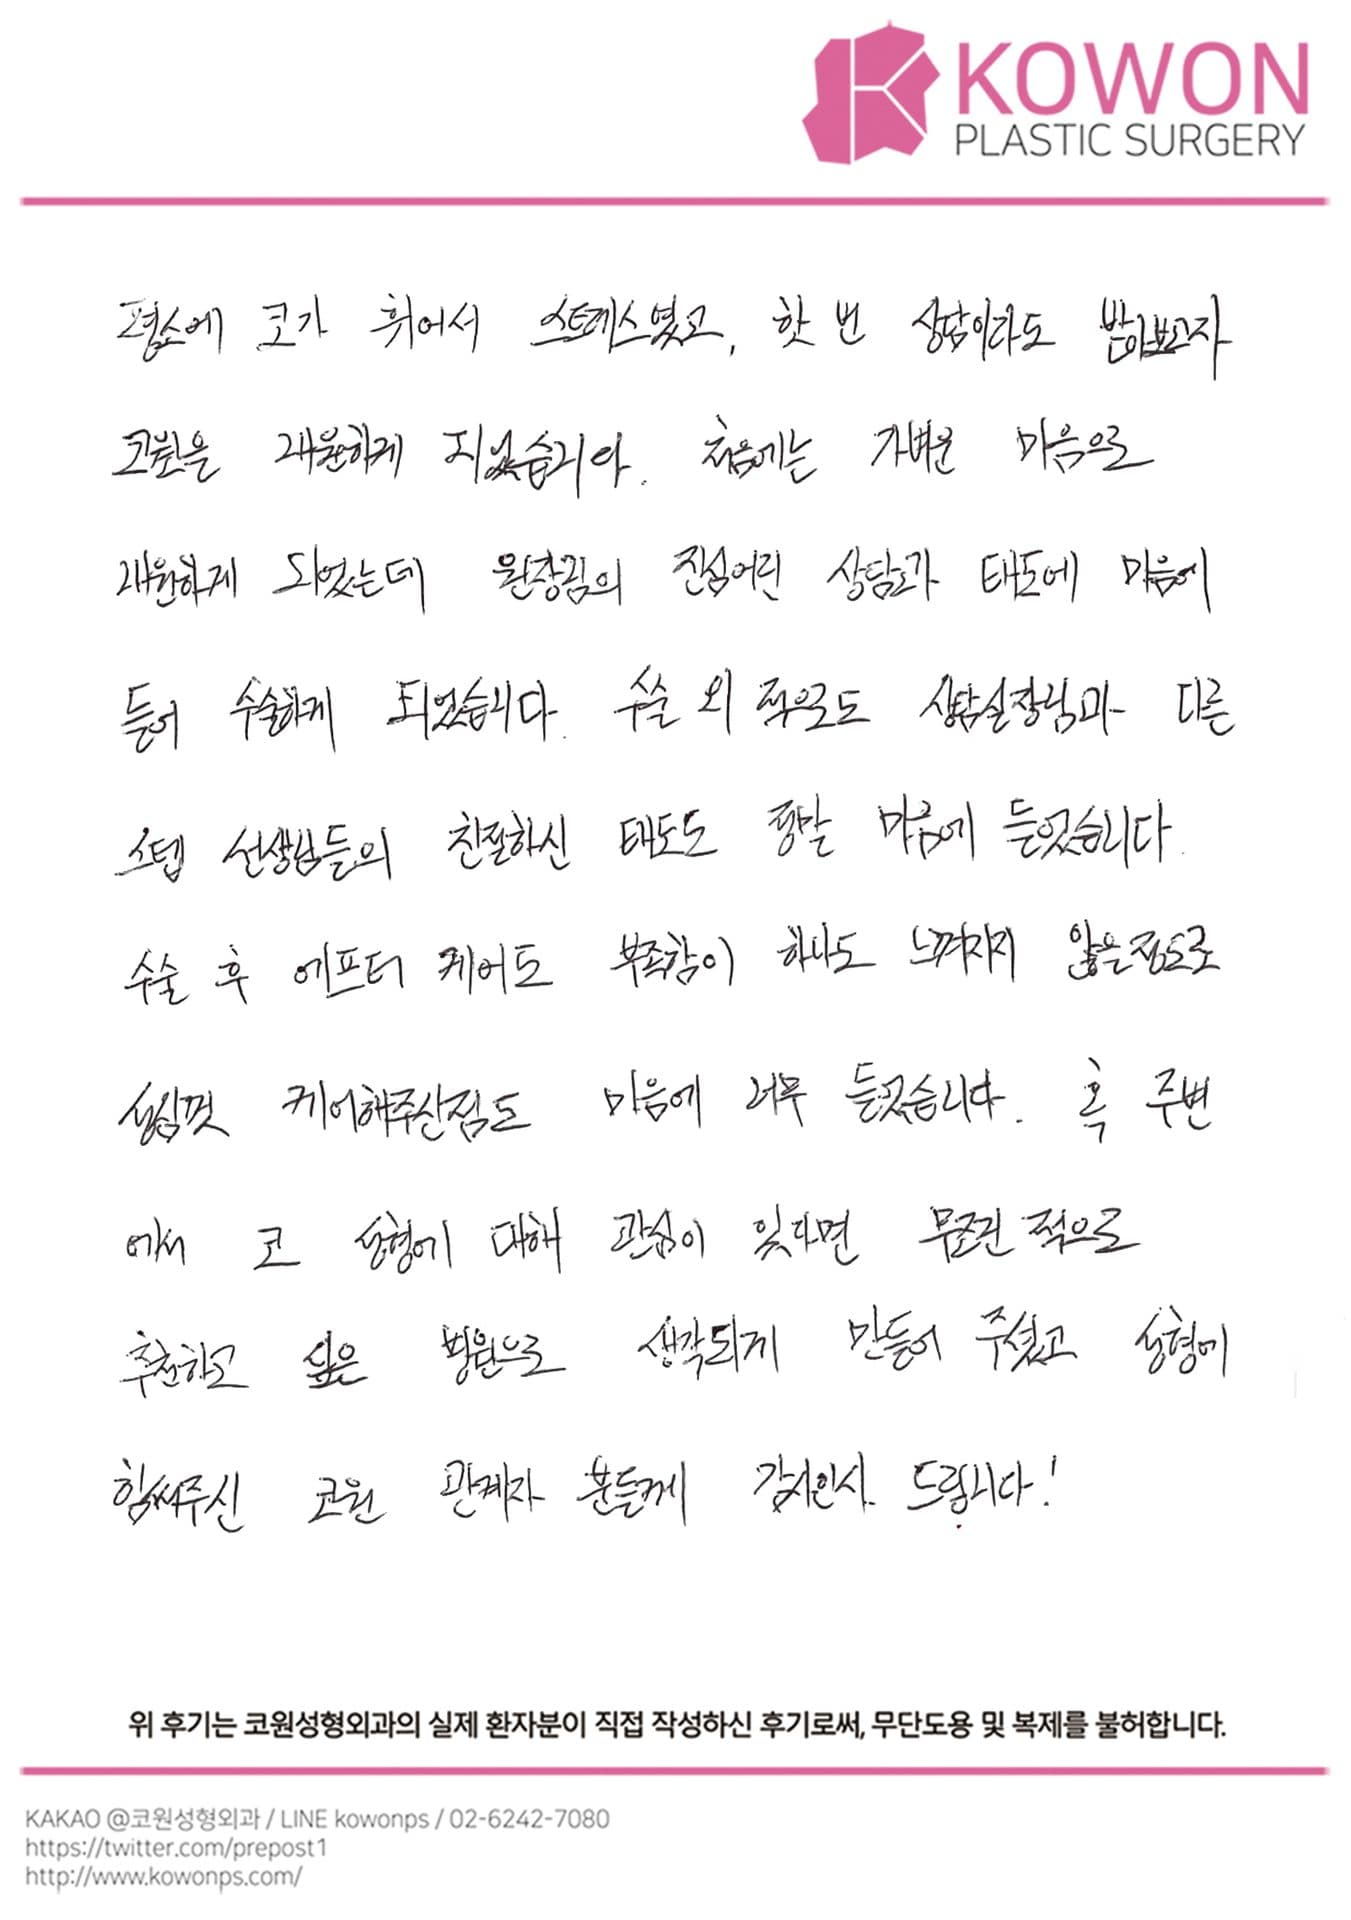 KOWON
PLASTIC SURGERY
평소에 코가 휘어서 스트레스였고, 한 번 상담이라도 받아보고자
코원을 내원하게 되었습니다. 처음에는 가벼운 마음으로
내원하게 되었는데 원장님의 진심어린 상담과 태도에 마음에
들어 수술하게 되었습니다. 수술 외 적으로도 상담실장님과 다른
스텝 선생님들의 친절하신 태도도 정말 마음에 들었습니다.
수술 후 에프터 케어도 부족함이 하나도 느껴지지 않은정도로
성심껏 케어해주신점도 마음에 너무 들었습니다. 혹 주변
에서 코 성형에 대해 관심이 있다면 무조건 적으로
추천하고 싶은 병원으로 생각되게 만들어 주셨고 성형에
힘써주신 코원 관계자 분들께 감사인사 드립니다!
위 후기는 코원성형외과의 실제 환자분이 직접 작성하신 후기로써, 무단도용 및 복제를 불허합니다.
KAKAO @코원성형외과 / LINE kowonps / 02-6242-7080
https://twitter.com/prepost1
http://www.kowonps.com/